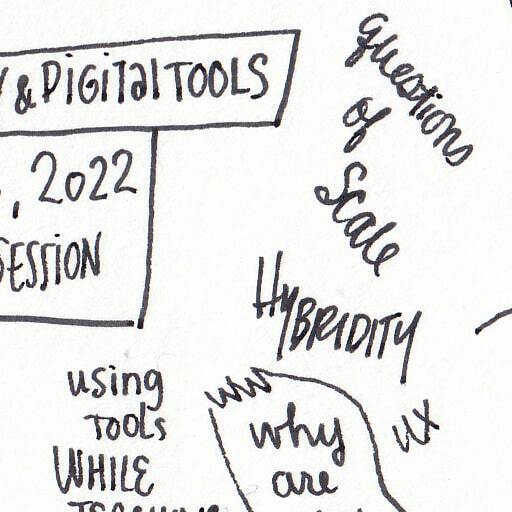 & DiGiTal TOOLS
, 2022
SESSION
questions
of
Scale
HYBRIDITY
using
TOOLS
WHILE
UX
why
are